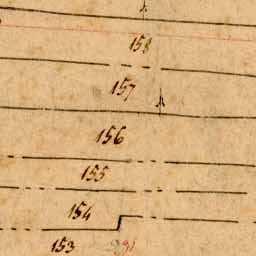 158
157
156
155
154
153 291